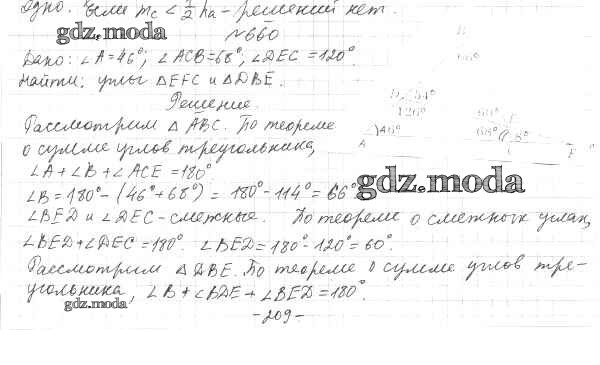 одно. Если m_c < 1/2 h_a - решений нет.
gdz.moda
№660
Дано: ∠A=46°; ∠ACB=68°; ∠DEC=120°
Найти: углы △EFC и △DBE.
Решение.
Рассмотрим △ABC. По теореме
о сумме углов треугольника,
∠A+∠B+∠ACE=180°
∠B=180°-(46°+68°)=180°-114°=66°
gdz.moda
∠BED и ∠DEC-смежные. По теореме о смежных углах,
∠BED+∠DEC=180°. ∠BED=180°-120°=60°.
Рассмотрим △DBE. По теореме о сумме углов тре-
угольника, ∠B+∠BDE+∠BED=180°.
gdz.moda
-209-
B
66°
D 54°
126°
60° E
46°
68°
A
F